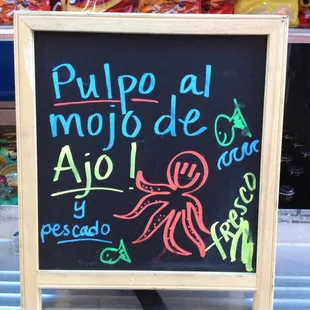 Pulpo al
mojo de
Ajo!
y
pescado
fresco